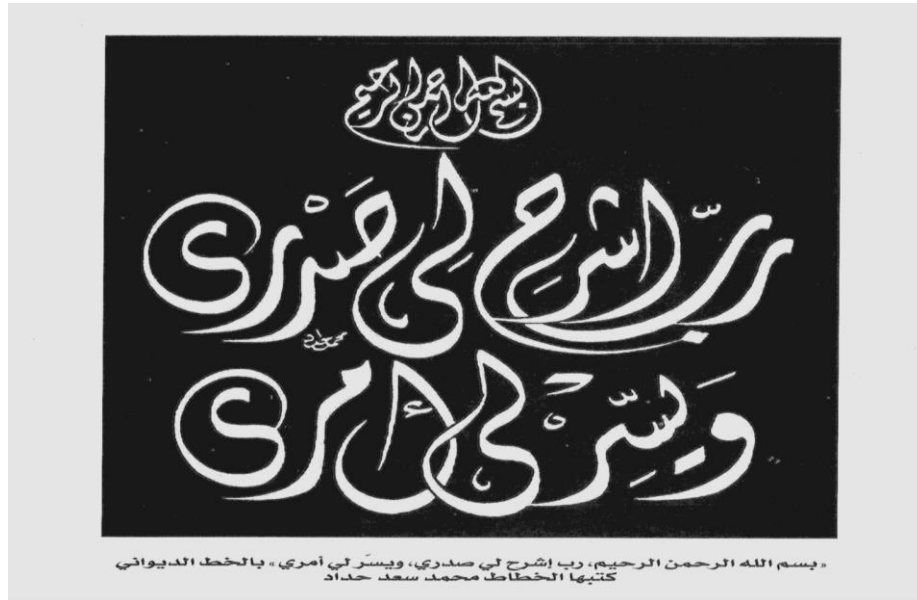 بسم الله الرحمن الرحيم
رَبِّ اشرَحِ لِي صَدْرى
وَيسِّرْ لى أمرى
محمد حداد
« بسم الله الرحمن الرحيم، رب إشرح لي صدري، ويسّر لي أمري » بالخط الديواني
كتبها الخطاط محمد سعد حداد